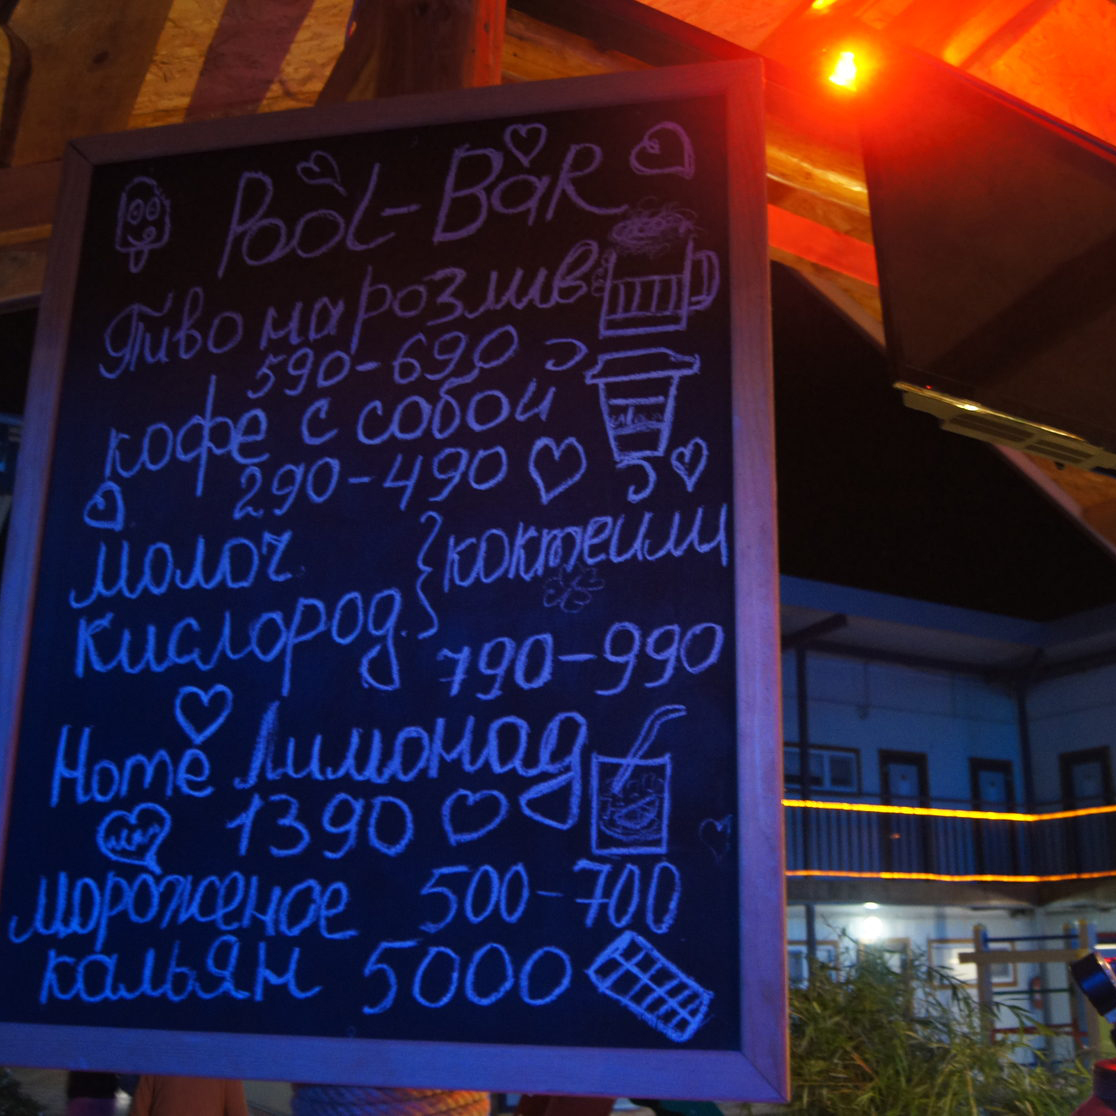 Pool-BaR
Пиво на розлив
590-690
кофе с собой
290-490
молоч.
кислород.
} коктейли
790-990
Home Лимонад
1390
мороженое 500-700
кальян 5000